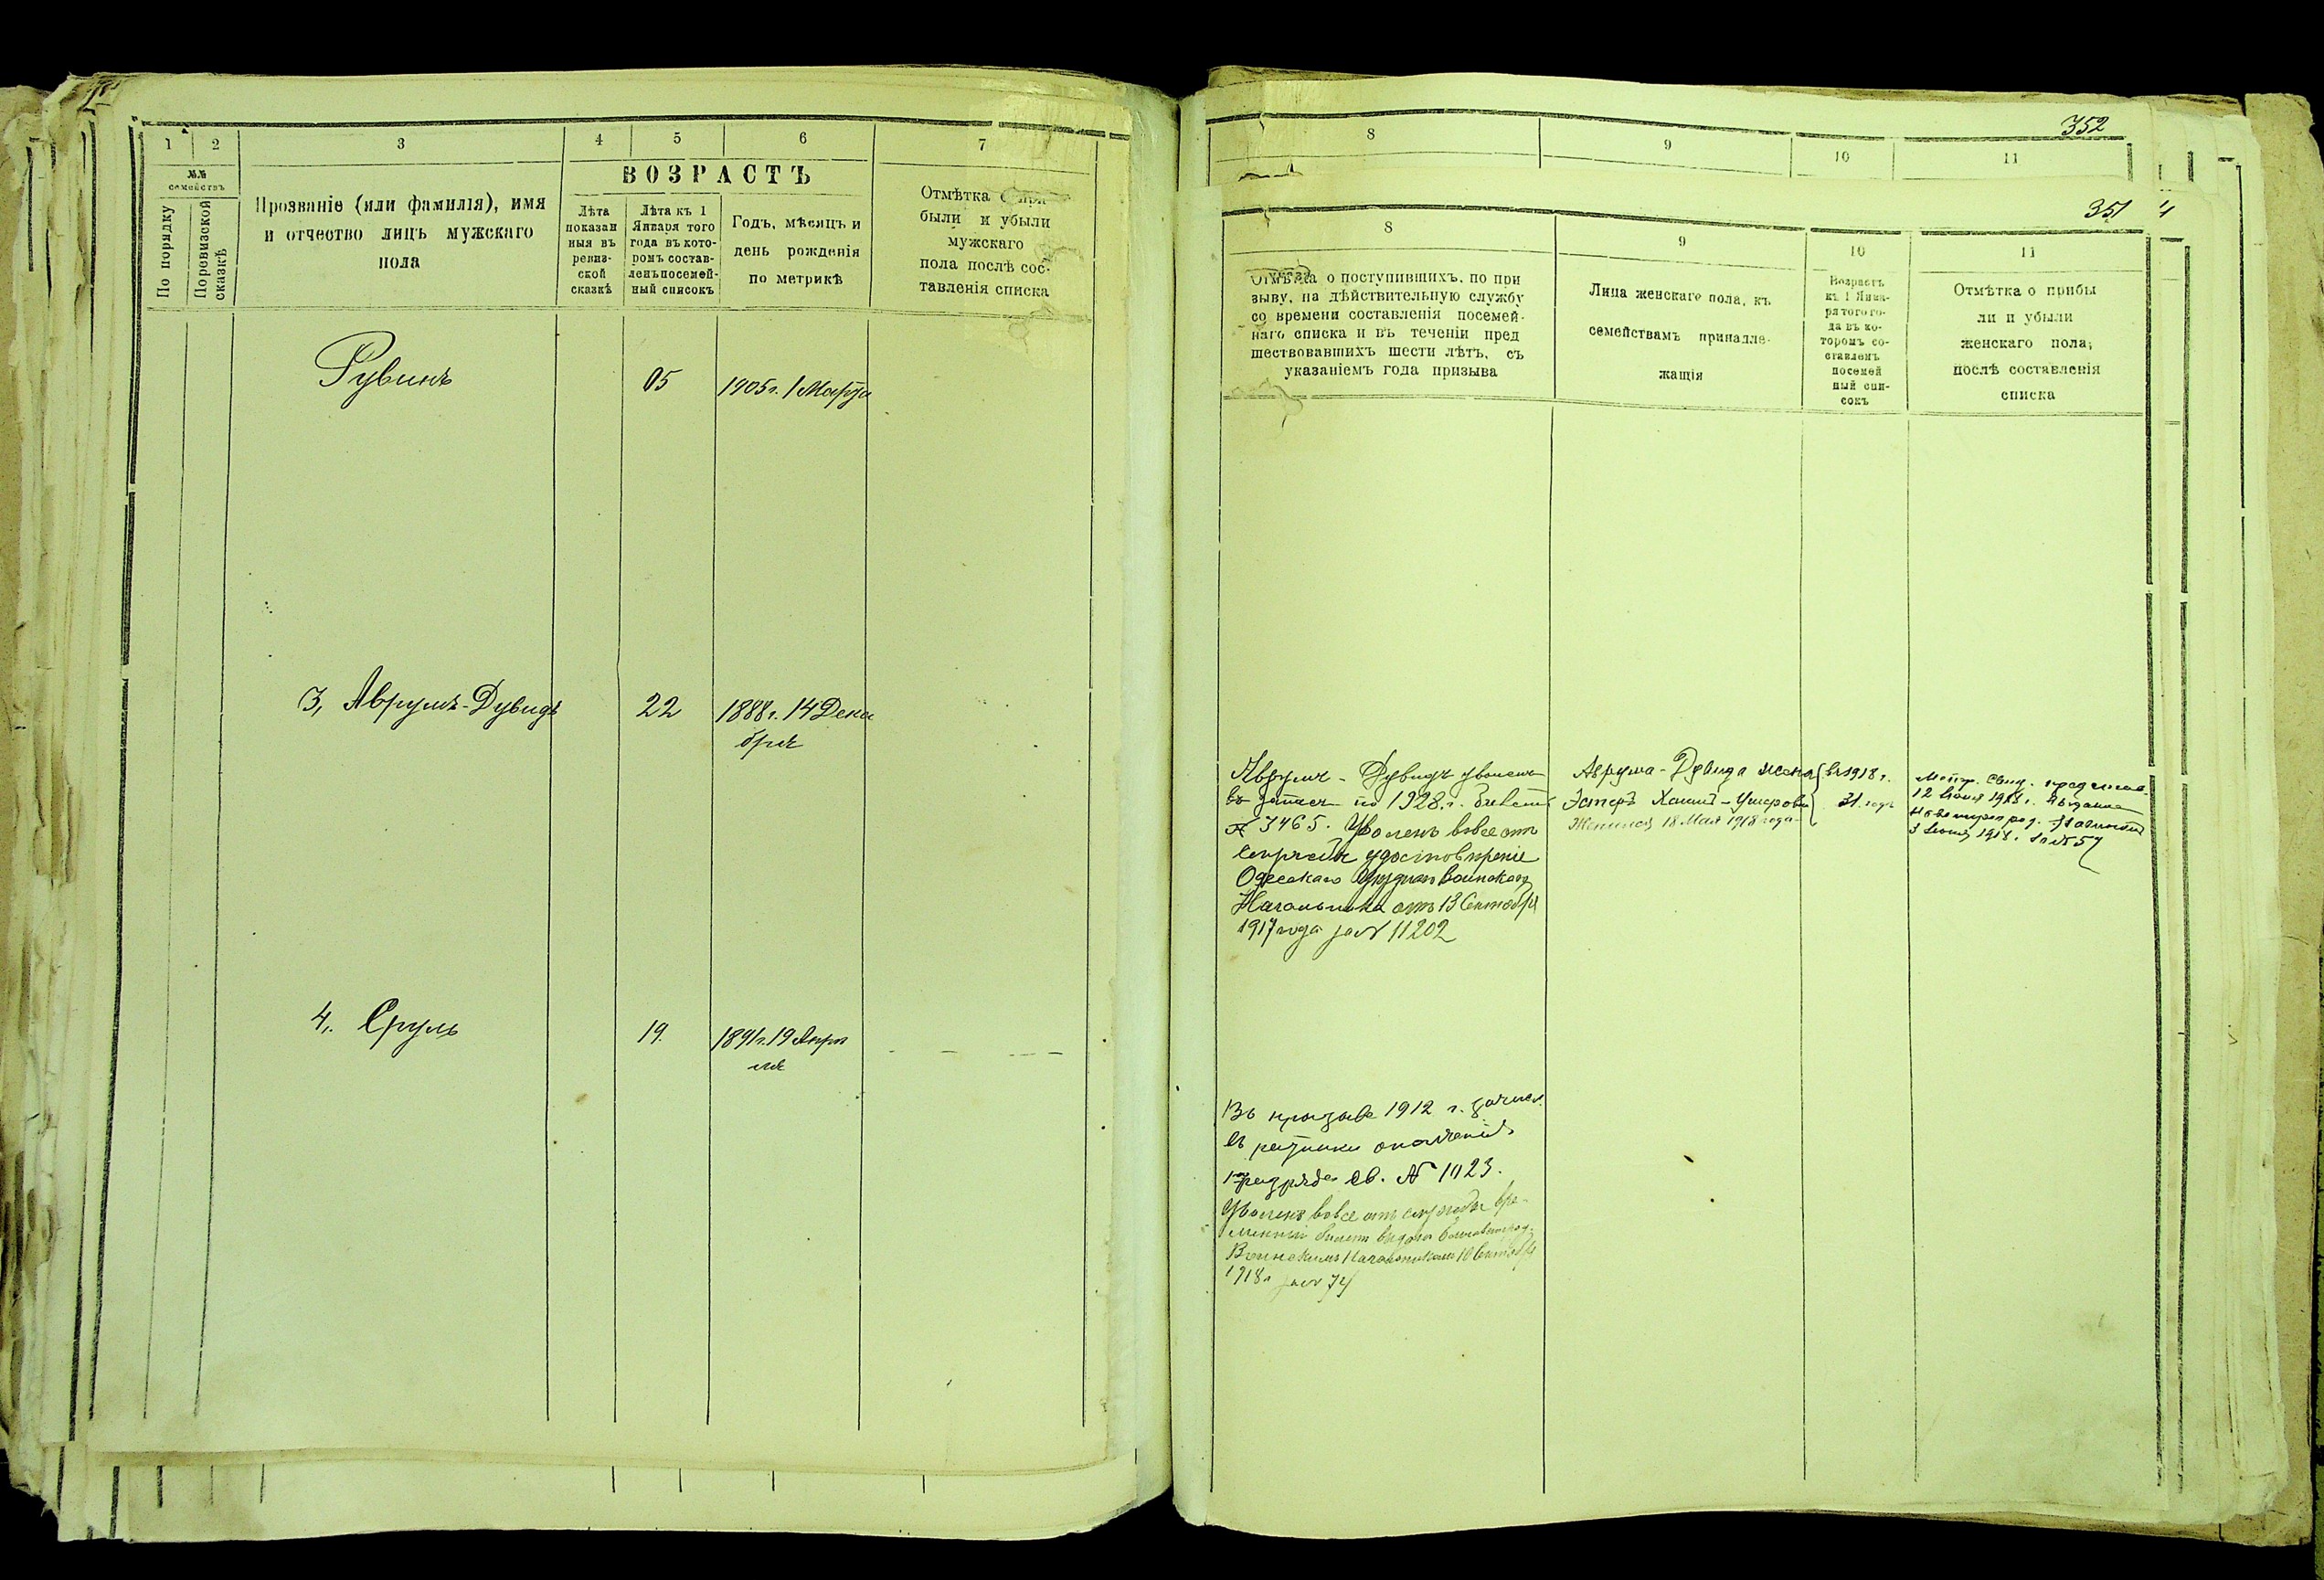 1 2 3 4 5 6 7
№№
семействъ
По порядку
По ревизской
сказкѣ
Прозваніе (или фамилія), имя
и отчество лицъ мужскаго
пола
ВОЗРАСТЪ
Лѣта
показан
ныя въ
ревиз-
ской
сказкѣ
Лѣта къ 1
Января того
года въ кото-
ромъ состав-
ленъ посемей-
ный списокъ
Годъ, мѣсяцъ и
день рожденія
по метрикѣ
Отмѣтка о при
были и убыли
мужскаго
пола послѣ сос-
тавленія списка
Рувинъ 05 1905 г. 1 Марта
3, Аврумъ-Дувидъ 22 1888 г. 14 Дека
бря
4. Сруль 19. 1891 г. 19 Апрѣ
ля
352
8 9 10 11
351
8 9 10 11
Отмѣтка о поступившихъ, по при
зыву, на дѣйствительную службу
со времени составленія посемей-
наго списка и въ теченіи пред
шествовавшихъ шести лѣтъ, съ
указаніемъ года призыва
Лица женскаго пола, къ
семействамъ принадле-
жащія
Возрастъ
къ 1 Янва-
ря того го-
да въ ко-
торомъ со-
ставленъ
посемей
ный спи-
сокъ
Отмѣтка о прибы
ли и убыли
женскаго пола,
послѣ составленія
списка
Аврумъ-Дувидъ уволенъ
въ запасъ по 1928 г. билетъ
№ 3465. Уволенъ вовсе отъ
службы удостовѣреніе
Одесскаго Уѣзднаго Воинскаго
Начальника отъ 13 Сентября
1917 года за № 11202
Аврума-Дувида жена
Эстеръ Ушерова
Женился 18 Мая 1918 года
въ 1918 г.
21 годъ
Метр. Свид. представ.
12 1918 г.
1918 г. за № 57
Въ призывѣ 1912 г. зачисл.
въ ратники ополченія
1го разряда св. № 1023.
Уволенъ вовсе отъ службы вре-
менный билетъ выданъ
Воинскимъ Начальникомъ 10 Сентября
1918 г. за № 74